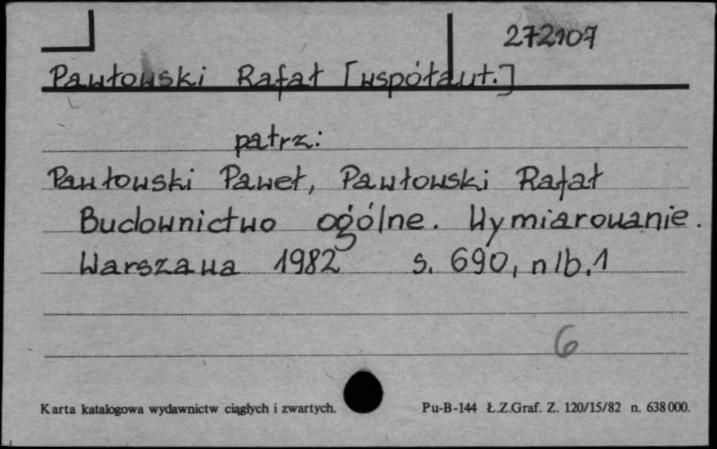 272107
Pawłowski Rafał [współaut.]
patrz:
Pawłowski Paweł, Pawłowski Rafał
Budownictwo ogólne. Wymiarowanie.
Warszawa 1982 s. 690, nlb. 1
6
Karta katalogowa wydawnictw ciągłych i zwartych. Pu-B-144 Ł.Z.Graf. Z. 120/15/82 n. 638000.